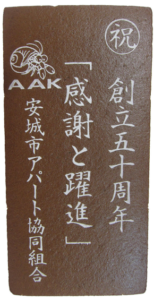 祝
創立五十周年
「感謝と躍進」
AAK
安城市アパート協同組合